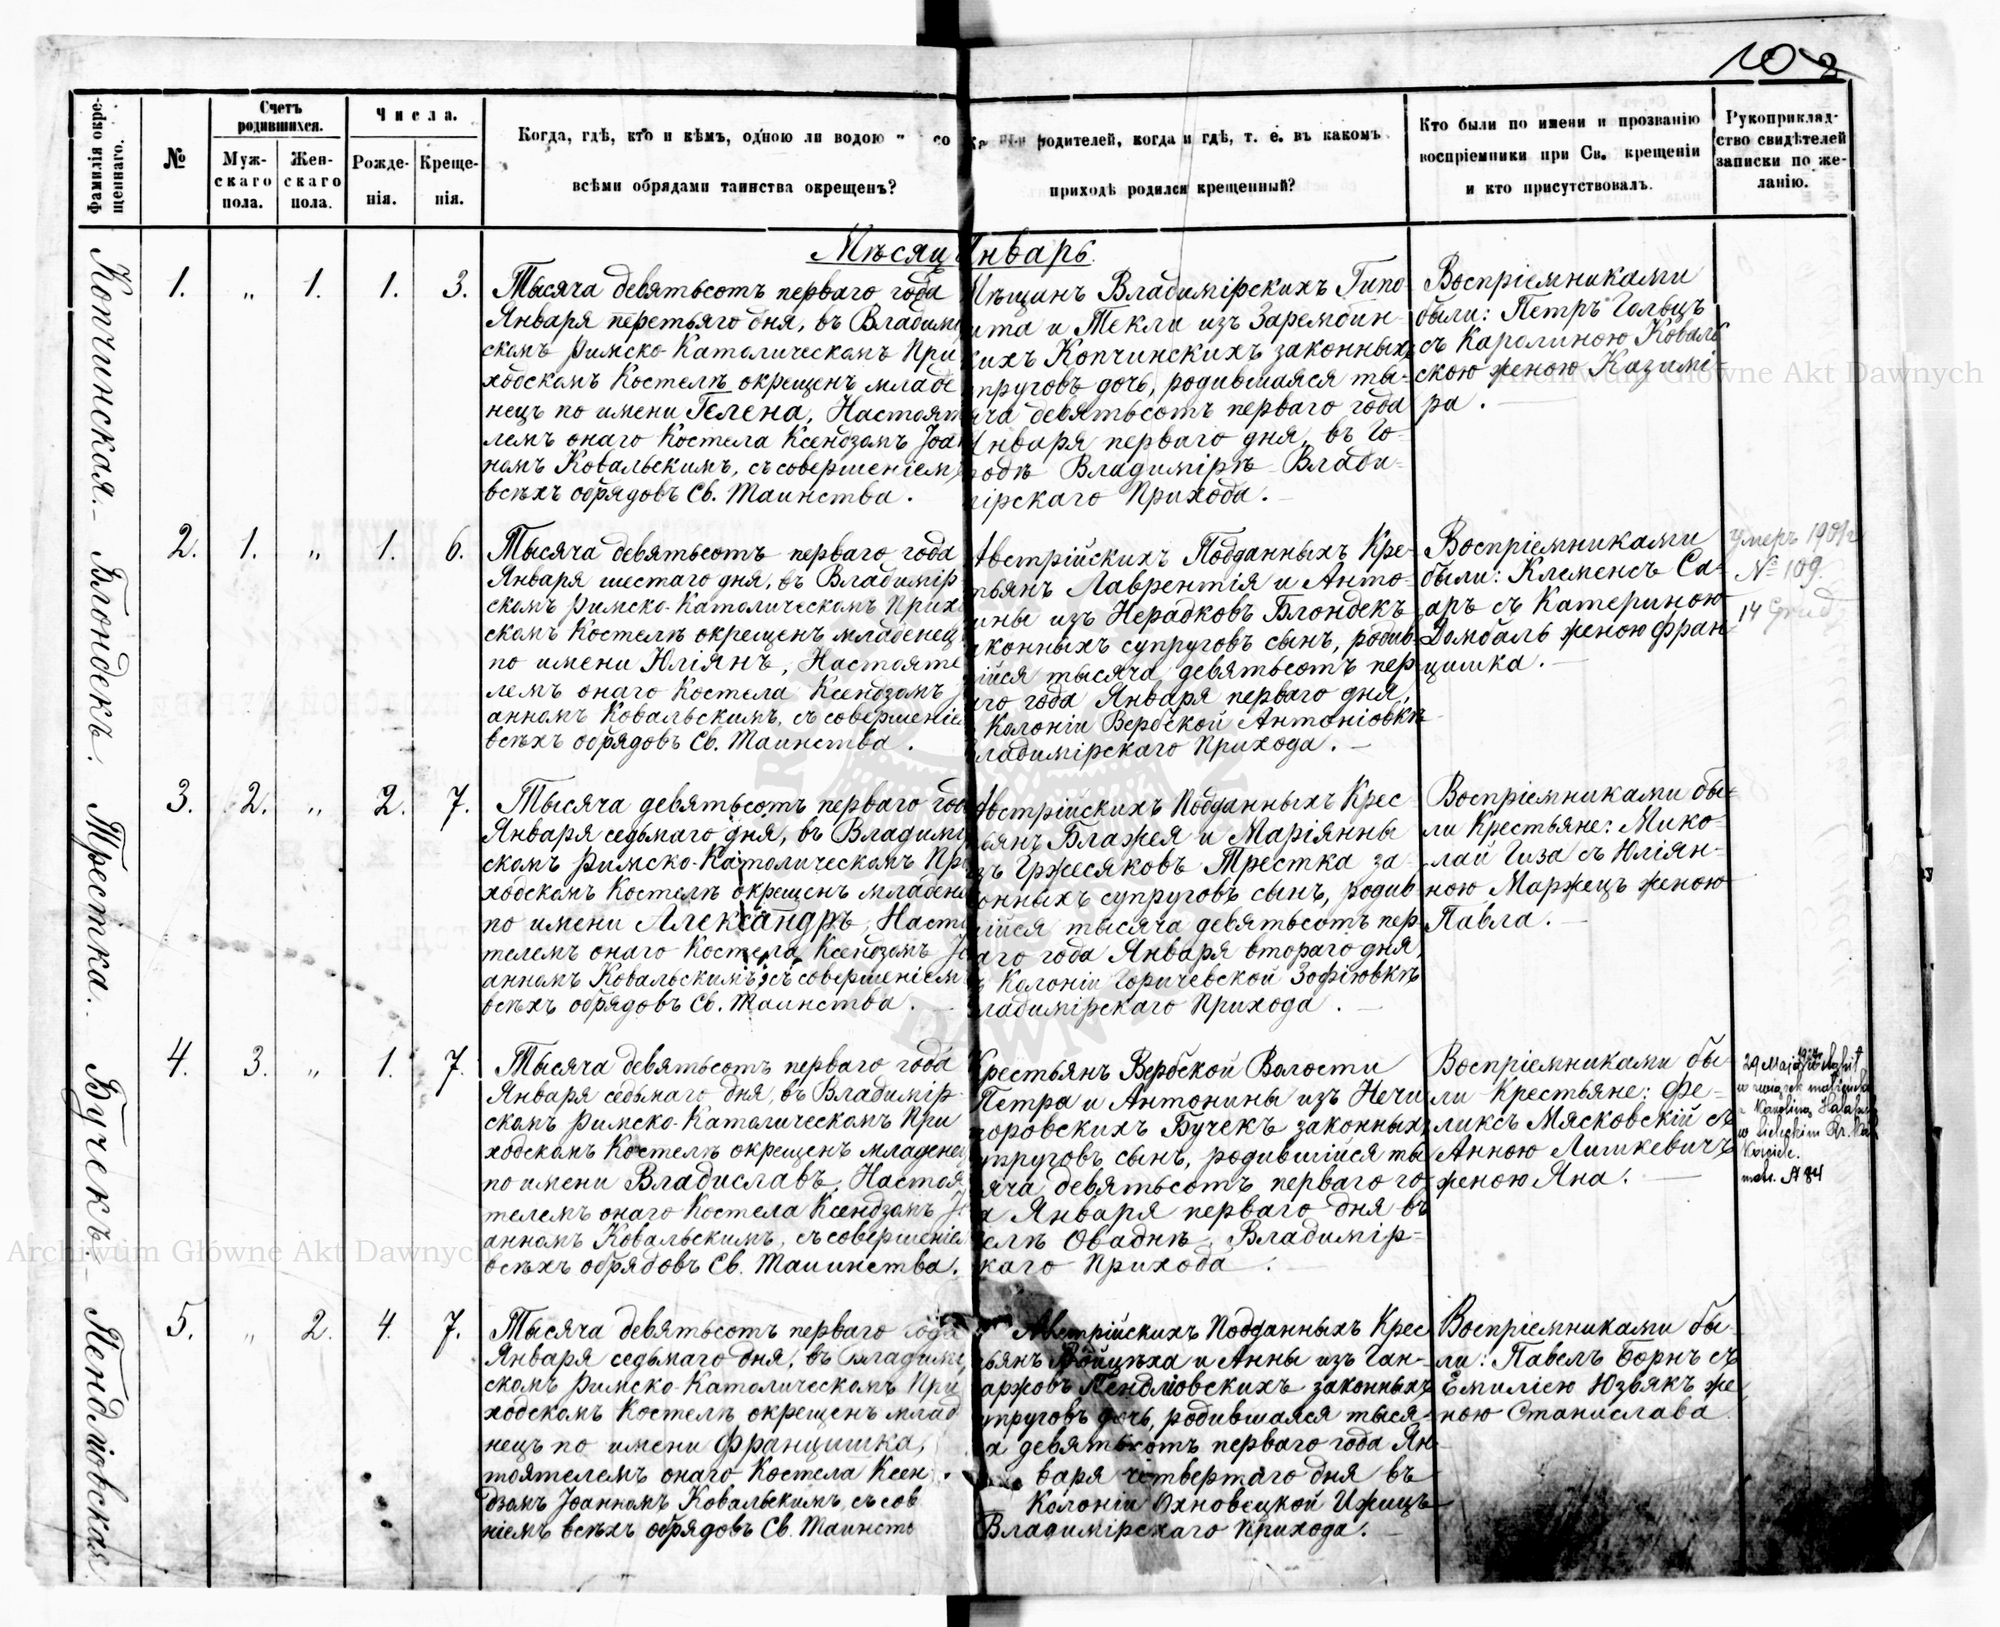 102
Фамилія окре-
щеннаго.
№
Счетъ
родившихся.
Муж-
скаго
пола.
Жен-
скаго
пола.
Числа.
Рожде-
нія.
Креще-
нія.
Когда, гдѣ, кто и кѣмъ, одною ли водою со
всѣми обрядами таинства окрещенъ?
родителей, когда и гдѣ, т. е. въ какомъ
приходѣ родился крещенный?
Кто были по имени и прозванію
воспріемники при Св. крещеніи
и кто присутствовалъ.
Рукоприклад-
ство свидѣтелей
записки по же-
ланію.
Мѣсяц Январь.
Копчинская.
1. „ 1. 1. 3.
Тысяча девятьсотъ перваго года
Января третьяго дня, въ Владимі
скомъ Римско-Католическомъ При
ходскомъ Костелѣ окрещенъ младе
нецъ по имени Гелена, Настоят
лемъ онаго Костела Ксендзомъ Іоа
номъ Ковальскимъ, съ совершеніем
всѣхъ обрядовъ Св. Таинства.
Мѣщанъ Владимірскихъ Гипо
ита и Текли изъ Зарембин-
кихъ Копчинскихъ законныхъ
пруговъ дочь, родившаяся ты-
яча девятьсотъ перваго года
Января перваго дня, въ Го-
родѣ Владимірѣ Влади-
мірскаго Прихода.
Воспріемниками
были: Петръ Гольцъ
съ Каролиною Коваль
скою женою Казимі-
ра.
Блондекъ.
2. 1. „ 1. 6.
Тысяча девятьсотъ перваго года
Января шестаго дня, въ Владимір
скомъ Римско-Католическомъ Прихо
скомъ Костелѣ окрещенъ младенец
по имени Юліянъ, Настояте
лемъ онаго Костела Ксендзомъ
анномъ Ковальскимъ, съ совершеніе
всѣхъ обрядовъ Св. Таинства.
Австрійскихъ Подданныхъ Кре-
тьянъ Лаврентія и Анто-
ины изъ Нерадковъ Блондекъ
аконныхъ супруговъ сынъ, родив-
шійся тысяча девятьсотъ пер
аго года Января перваго дня,
Колоніи Вербской Антоніовкѣ
Владимірскаго Прихода.
Воспріемниками
были: Клеменсъ Са-
аръ съ Катериною
Домбаль женою Фран
цишка.
Умеръ 1901 г
№ 109.
14 Grud
Трестка.
3. 2. „ 2. 7.
Тысяча девятьсотъ перваго год
Января седьмаго дня, въ Владимі
скомъ Римско-Католическомъ При
ходскомъ Костелѣ окрещенъ младене
по имени Александръ, Насто
телемъ онаго Костела Ксендзомъ Іо
анномъ Ковальскимъ, съ совершеніем
всѣхъ обрядовъ Св. Таинства.
Австрійскихъ Подданныхъ Крес
ьянъ Блажея и Маріянны
изъ Гржесяковъ Трестка за-
онныхъ супруговъ сынъ, родив
шійся тысяча девятьсотъ пер-
аго года Января втораго дня,
Колоніи Горичевской Зофіювкѣ
Владимірскаго Прихода.
Воспріемниками бы-
ли Крестьяне: Мико-
лай Гиза съ Юліян-
ною Маржецъ женою
Павла.
Бучекъ.
4. 3. „ 1. 7.
Тысяча девятьсотъ перваго года
Января седьмаго дня, въ Владимір
скомъ Римско-Католическомъ При
ходскомъ Костелѣ окрещенъ младенец
по имени Владиславъ, Настоя
телемъ онаго Костела Ксендзомъ Іо
анномъ Ковальскимъ, съ совершеніе
всѣхъ обрядовъ Св. Таинства.
Крестьянъ Вербской Волости
Петра и Антонины изъ Нечи
поровскихъ Бучекъ законныхъ
упруговъ сынъ, родившійся ты
яча девятьсотъ перваго го-
а Января перваго дня въ
елѣ Оваднѣ, Владимір-
скаго Прихода.
Воспріемниками бы
ли Крестьяне: Фе-
ликсъ Мясковскій съ
Анною Лишкевичъ
женою Яна.
29 Maja
Karoliną
№ 84
Пендліовская.
5. „ 2. 4. 7.
Тысяча девятьсотъ перваго года
Января седьмаго дня, въ Владимі
скомъ Римско-Католическомъ При
ходскомъ Костелѣ окрещенъ млад
нецъ по имени Францишка,
тоятелемъ онаго Костела Ксен
дзомъ Іоанномъ Ковальскимъ, съ сов
ніемъ всѣхъ обрядовъ Св. Таинств
Австрійскихъ Подданныхъ Крес
ьянъ Войцѣха и Анны изъ Ган-
аржовъ Пендліовскихъ законныхъ
упруговъ дочь, родившаяся тыся-
а девятьсотъ перваго года Ян-
варя четвертаго дня въ
Колоніи Охновецкой Ижицъ
Владимірскаго Прихода.
Воспріемниками бы-
ли: Павелъ Борнъ съ
Емиліею Юзвякъ же
ною Станислава
Archiwum Główne Akt Dawnych
Archiwum Główne Akt Dawnych